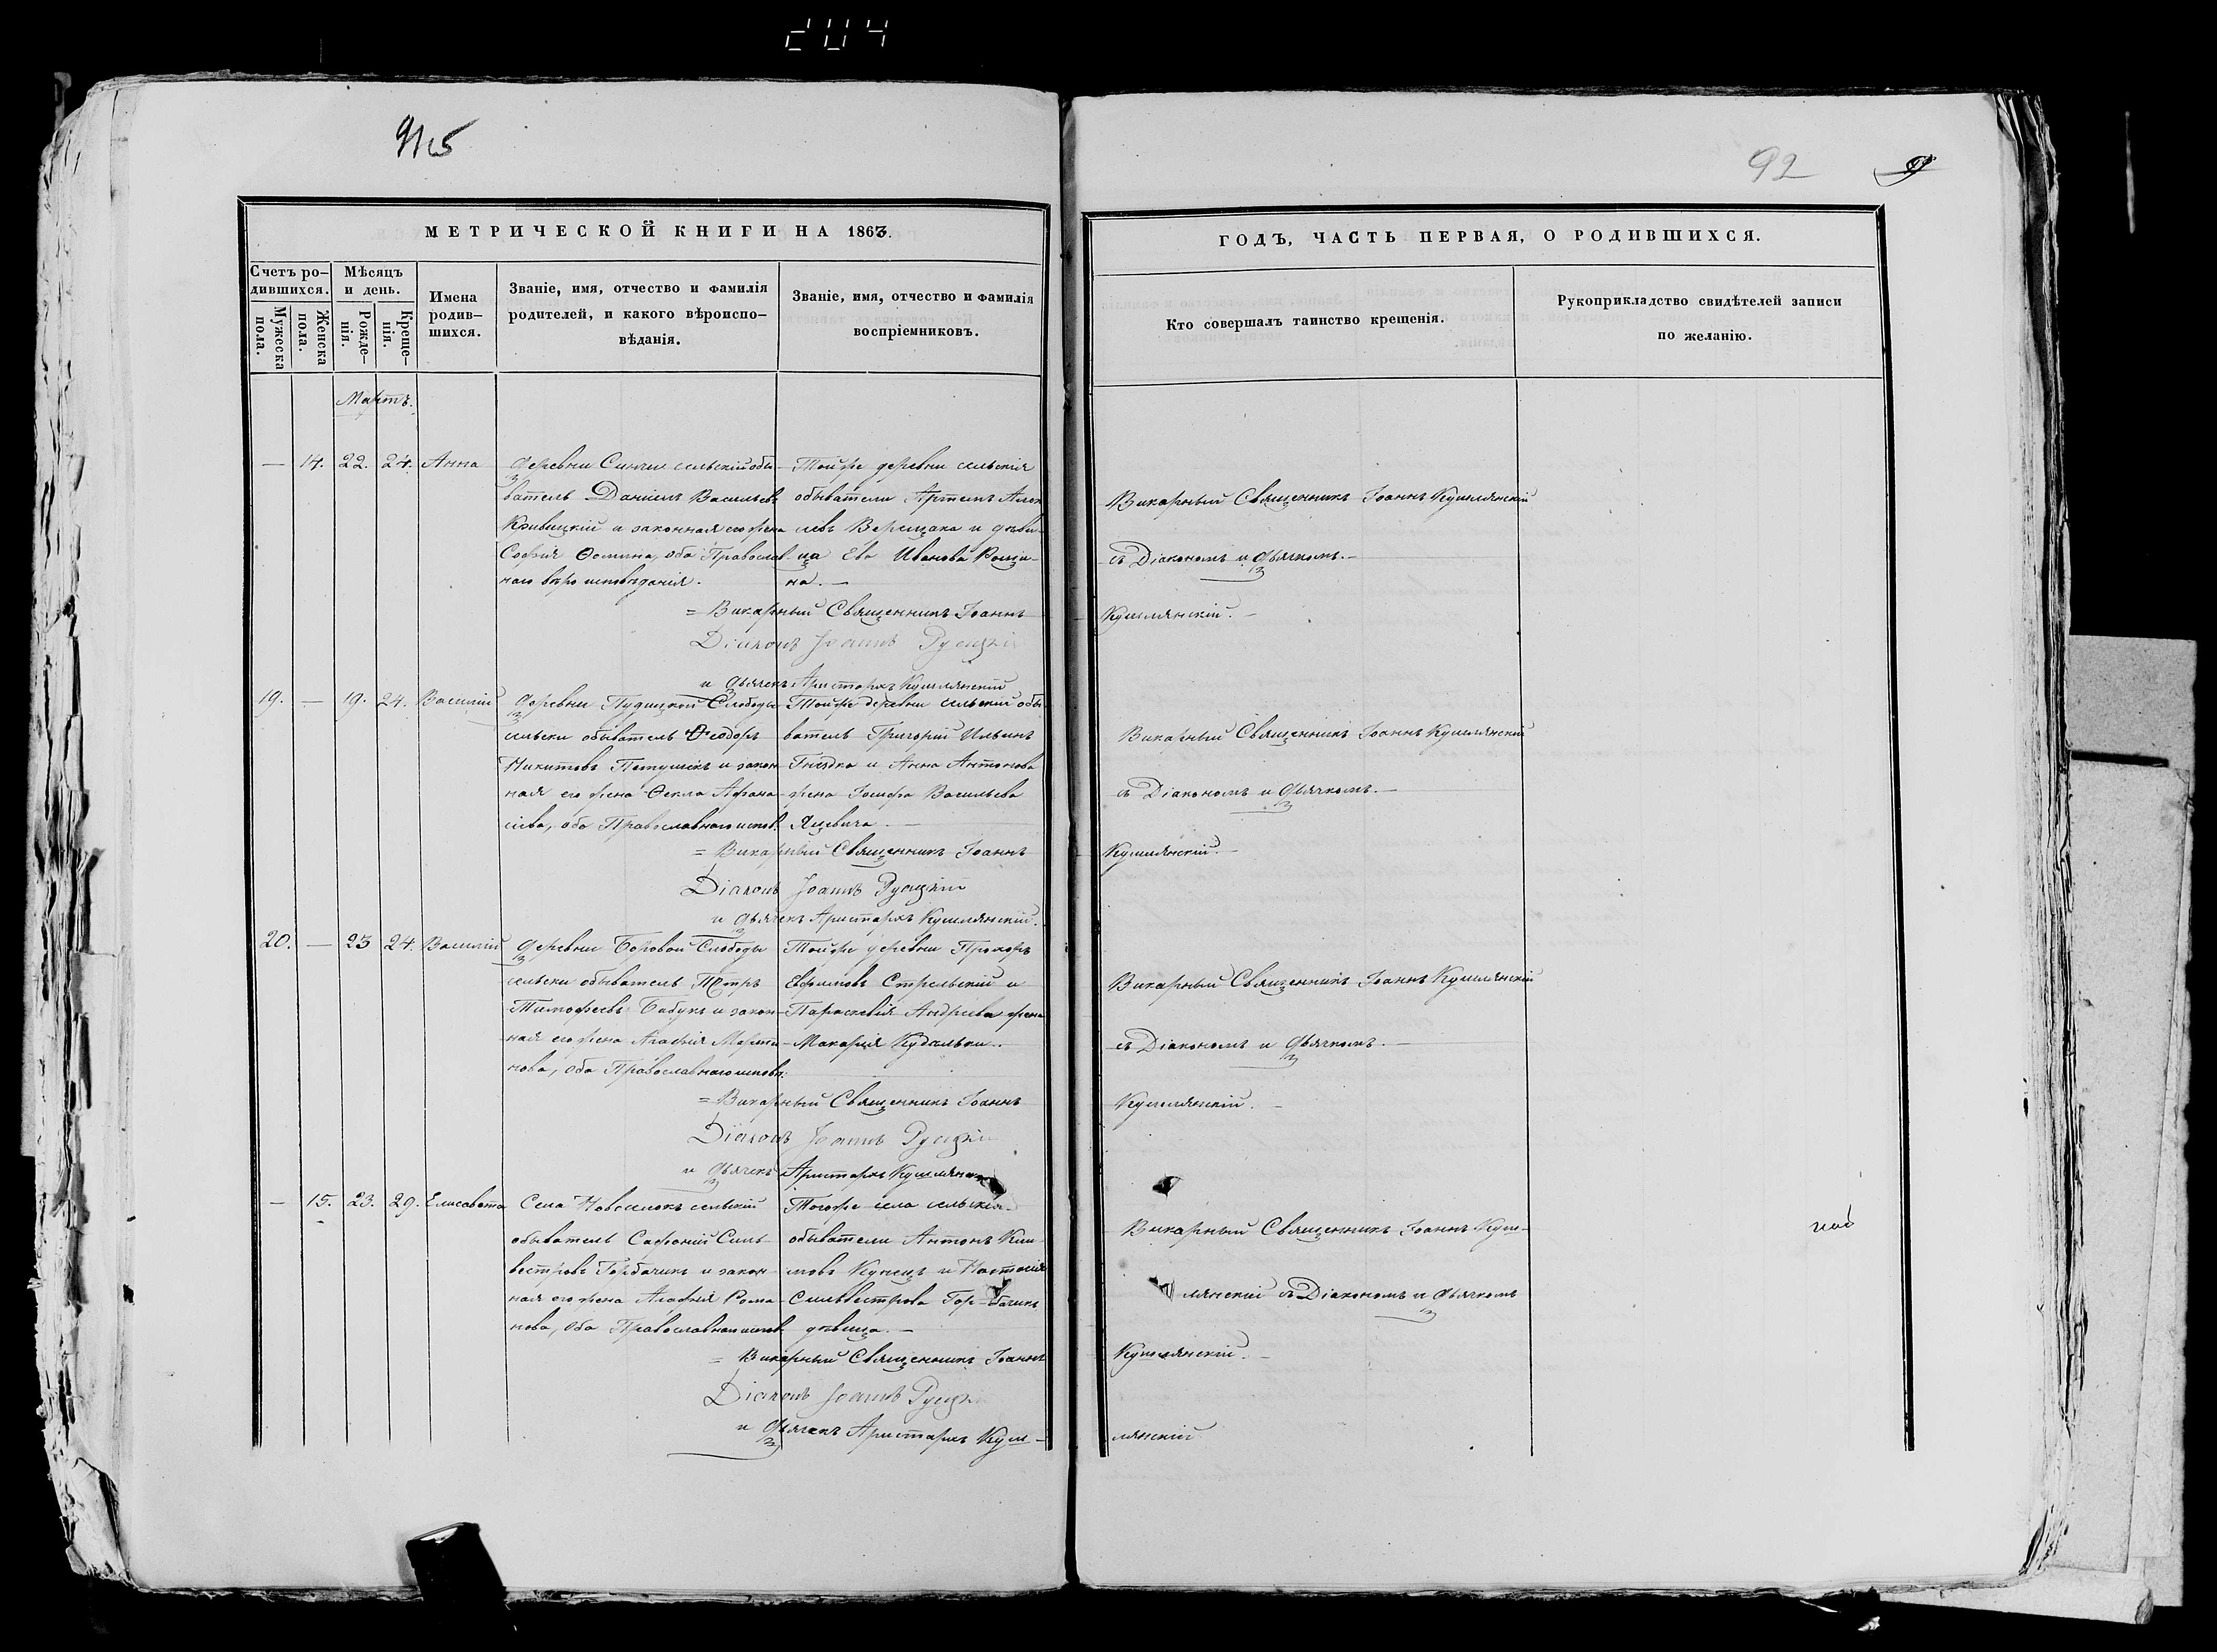 204
915
92
МЕТРИЧЕСКОЙ КНИГИ НА 1863.
Счетъ ро-
дившихся.
Мужеска
пола.
Женска
пола.
Мѣсяцъ
и день.
Рожде-
нія.
Креще-
нія.
Имена
родив-
шихся.
Званіе, имя, отчество и фамилія
родителей, и какого вѣроиспо-
вѣданія.
Званіе, имя, отчество и фамилія
воспріемниковъ.
ГОДЪ, ЧАСТЬ ПЕРВАЯ, О РОДИВШИХСЯ.
Кто совершалъ таинство крещенія.
Рукоприкладство свидѣтелей записи
по желанію.
Мартъ.
— 14. 22. 24. Анна
Деревни сельскій обы-
ватель Даніилъ Васильевъ
Кривицкій и законная его жена
Софія Ѳомина, оба Православ-
наго вѣроисповѣданія.
Тойже деревни сельскія
обыватели Артемъ
Верещака и дѣви-
ца Ева Иванова
на. —
Викарный Священникъ Іоаннъ Кушлянскій
съ Діакономъ и Дьячкомъ. —
= Викарный Священникъ Іоаннъ Кушлянскій. —
Діаконъ Іоаннъ Русецкій
и Дьячекъ Аристархъ Кушлянскій
19. — 19. 24. Василій
Деревни Пудицкой Слободы
сельски обыватель Ѳеодоръ
Никитовъ Петушекъ и закон-
ная его жена Ѳекла Афана-
сіева, оба Православнаго испов.
Тойже деревни сельскій обы-
ватель Григорій Ильинъ
Гнѣдко и Анна Антонова
жена Іосифа Васильева
Яцевича. —
Викарный Священникъ Іоаннъ Кушлянскій
съ Діакономъ и Дьячкомъ. —
= Викарный Священникъ Іоаннъ Кушлянскій. —
Діаконъ Іоаннъ Русецкій
и Дьячекъ Аристархъ Кушлянскій.
20. — 23 24. Василій
Деревни Боровой Слободы
сельски обыватель Петръ
Тимофеевъ Бабукъ и закон-
ная его жена Агафія Марти-
нова, оба Православнаго исповѣ:
Тойже деревни Прохоръ
Ефимовъ Стрельскій и
Параскевія Андреева жена
Макарія Кудельки.
Викарный Священникъ Іоаннъ Кушлянскій
съ Діакономъ и Дьячкомъ. —
= Викарный Священникъ Іоаннъ Кушлянскій. —
Діаконъ Іоаннъ Русецкій
и Дьячекъ Аристархъ Кушлянскій
— 15. 23. 29. Елисавета
Села Новоселокъ сельскій
обыватель Сафоній Силь-
вестровъ Горбачикъ и закон-
ная его жена Агафія Рома-
нова, оба Православнаго испов.
Тогоже села сельскія
обыватели Антонъ Кли-
мовъ Купецъ и Настасія
Сильвестрова Горбачикъ
дѣвица. —
Викарный Священникъ Іоаннъ Куш-
лянскій съ Діакономъ и Дьячкомъ
= Викарный Священникъ Іоаннъ Кушлянскій. —
Діаконъ Іоаннъ Русецкій
и Дьячекъ Аристархъ Куш-
лянскій